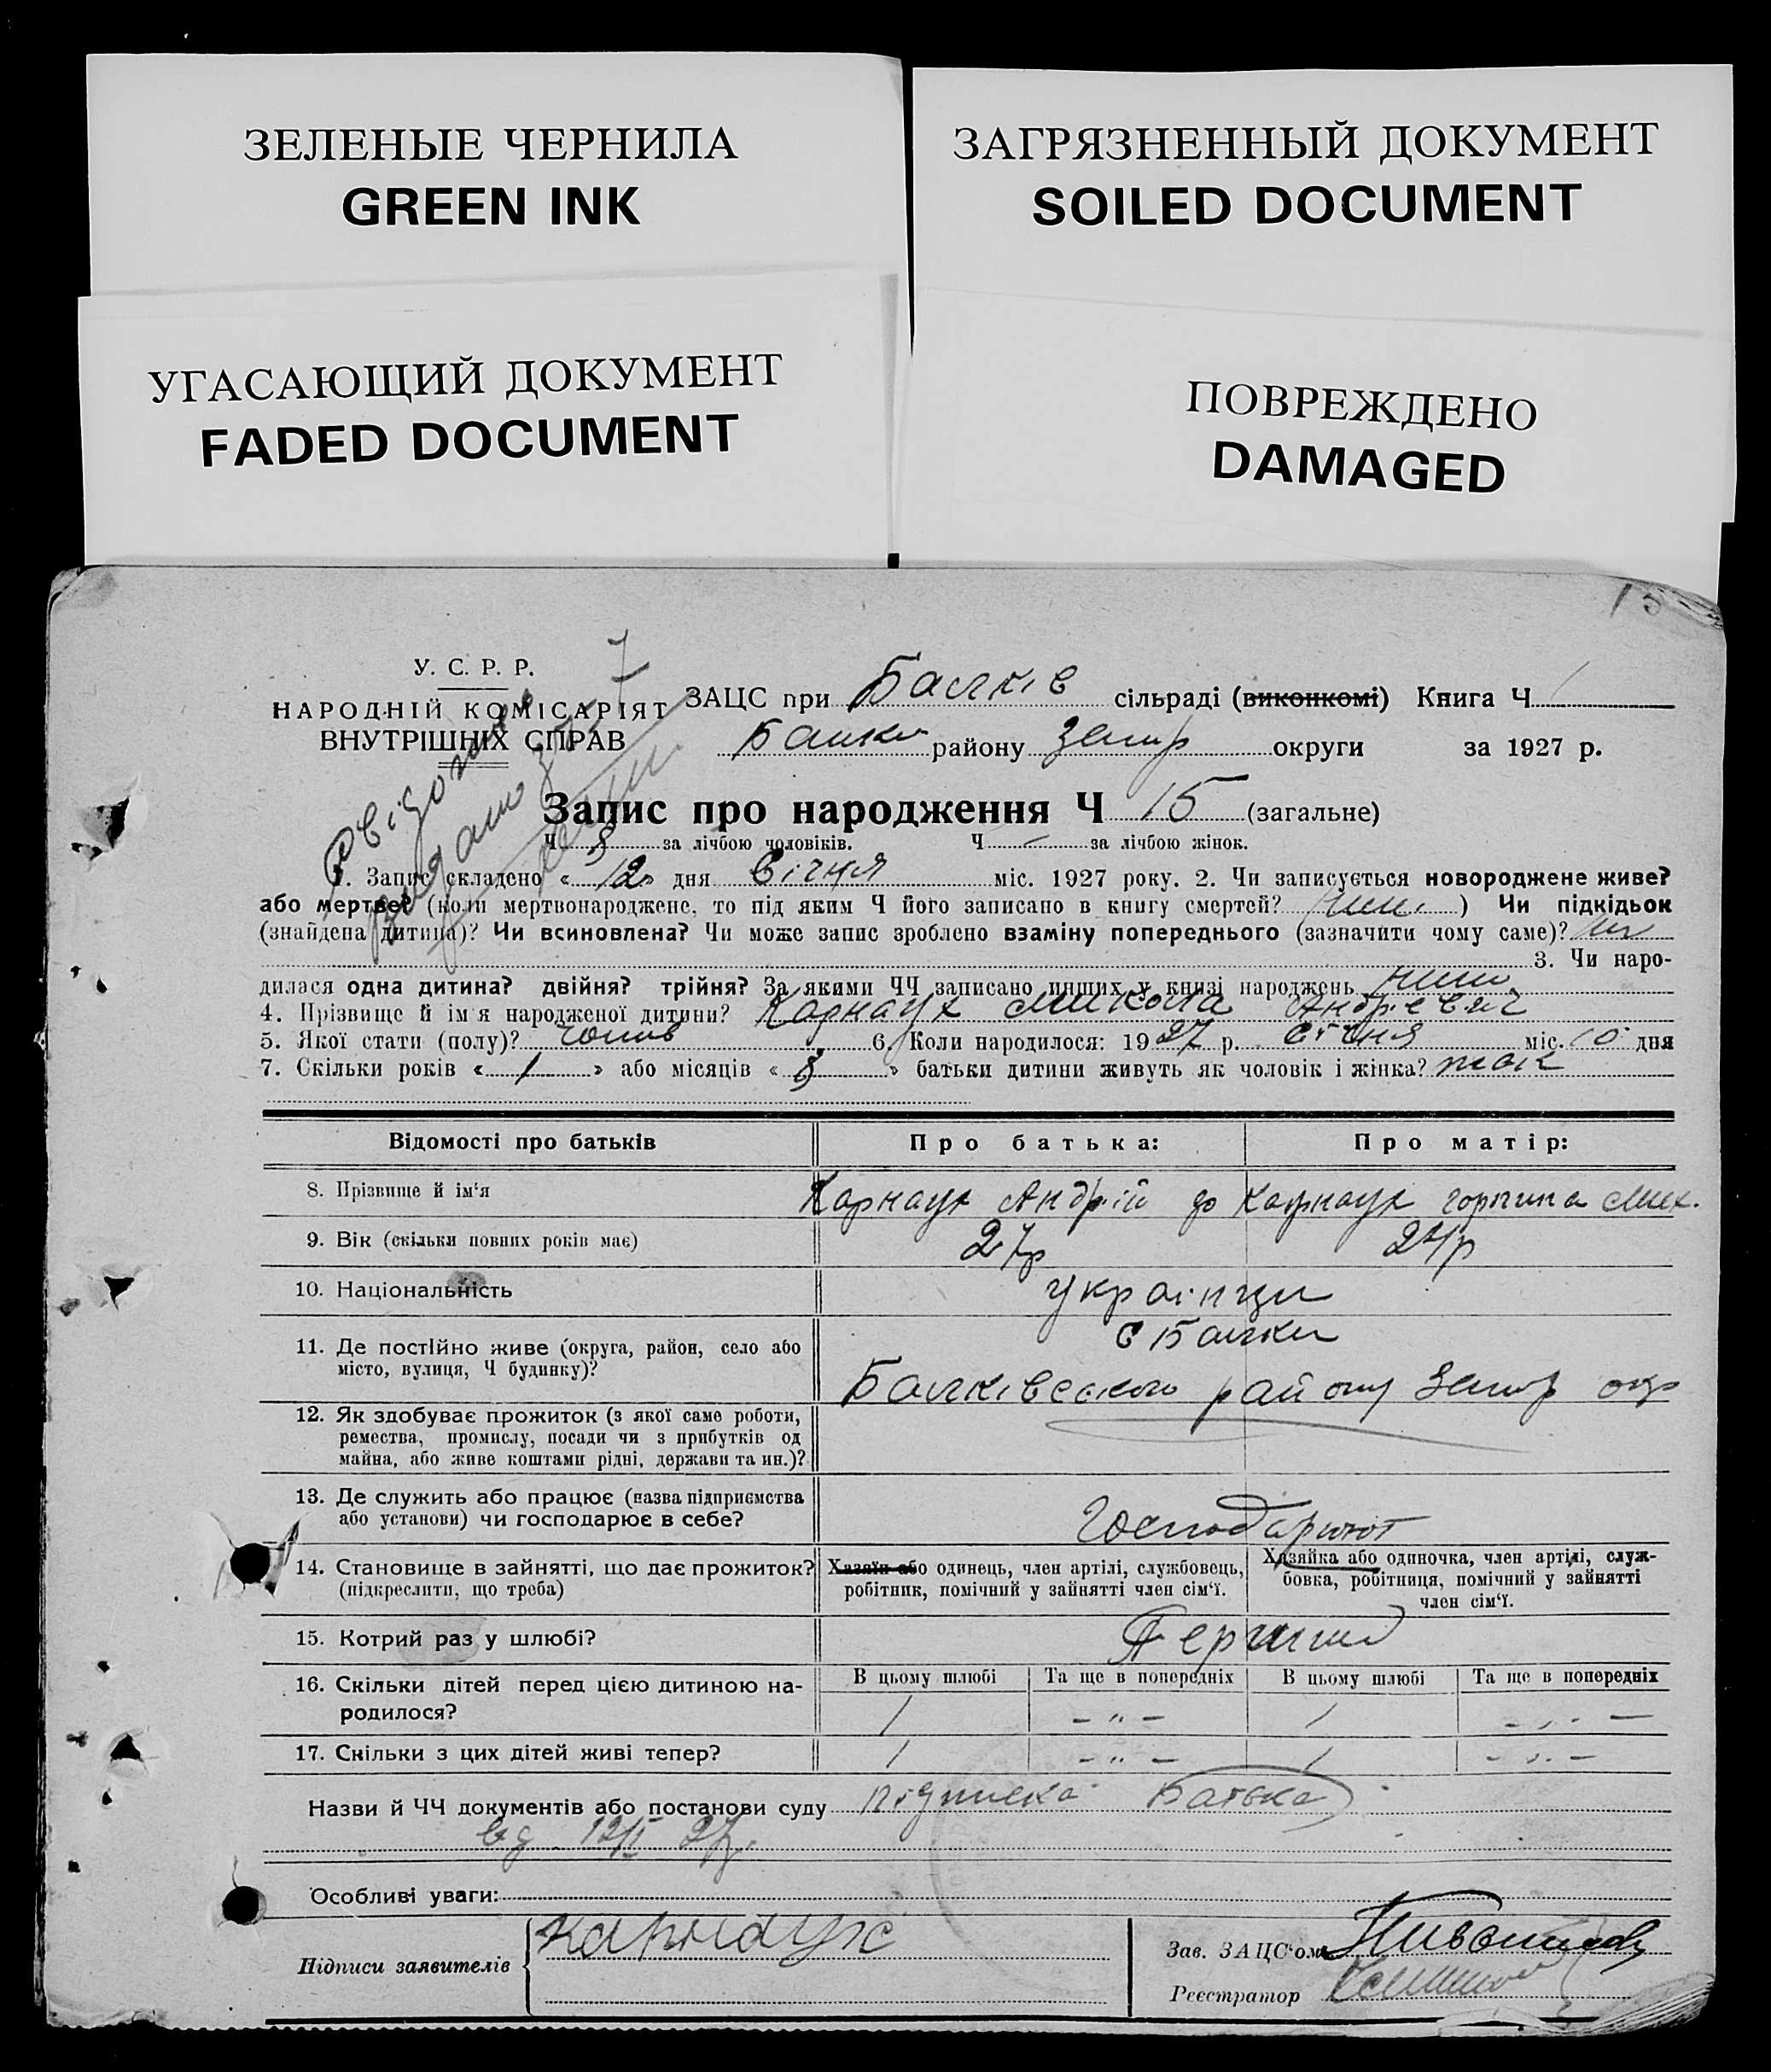 ЗЕЛЕНЫЕ ЧЕРНИЛА
GREEN INK
ЗАГРЯЗНЕННЫЙ ДОКУМЕНТ
SOILED DOCUMENT
УГАСАЮЩИЙ ДОКУМЕНТ
FADED DOCUMENT
ПОВРЕЖДЕНО
DAMAGED
У. С. Р. Р.
НАРОДНІЙ КОМІСАРІЯТ
ВНУТРІШНІХ СПРАВ
7
ЗАЦС при Балків сільраді (виконкомі) Книга Ч 1
Балки району Запор округи за 1927 р.
Запис про народження Ч 15 (загальне)
Ч 8 за лічбою чоловіків. Ч — за лічбою жінок.
1. Запис складено « 12 » дня Січня міс. 1927 року. 2. Чи записується новороджене живе?
або мертве? (коли мертвонароджене, то під яким Ч його записано в книгу смертей? ) Чи підкідьок
(знайдена дитина)? Чи всиновлена? Чи може запис зроблено взаміну попереднього (зазначити чому саме)?
3. Чи наро-
дилася одна дитина? двійня? трійня? За якими ЧЧ записано инших у книзі народжень
4. Прізвище й ім'я народженої дитини? Карнаух Микола Андрієвич
5. Якої стати (полу)? чолов 6. Коли народилося: 1927 р. січня міс. 10 дня
7. Скільки років « 1 » або місяців « 8 » батьки дитини живуть як чоловік і жінка? так
Відомості про батьків
Про батька:
Про матір:
8. Прізвище й ім'я
Карнаух Андрій
Карнаух Горпина Мих.
9. Вік (скільки повних років має)
27р
24р
10. Національність
українци
11. Де постійно живе (округа, район, село або
місто, вулиця, Ч будинку)?
с Балки
Балківського району Запор окр
12. Як здобуває прожиток (з якої саме роботи,
ремества, промислу, посади чи з прибутків од
майна, або живе коштами рідні, держави та ин.)?
13. Де служить або працює (назва підприємства
або установи) чи господарює в себе?
Господарюют
14. Становище в зайнятті, що дає прожиток?
(підкреслити, що треба)
Хазяїн або одинець, член артілі, службовець,
робітник, помічний у зайнятті член сім'ї.
Хазяйка або одиночка, член артілі, служ-
бовка, робітниця, помічний у зайнятті
член сім'ї.
15. Котрий раз у шлюбі?
Первий
16. Скільки дітей перед цією дитиною на-
родилося?
В цьому шлюбі
Та ще в попередніх
В цьому шлюбі
Та ще в попередніх
1 – „ – 1 – „ –
17. Скільки з цих дітей живі тепер?
1 – „ – 1 – „ –
Назви й ЧЧ документів або постанови суду підписка Батька
від 12/I 27р.
Особливі уваги:
Підписи заявителів
Карнаух
Зав. ЗАЦС'ом
Реєстратор